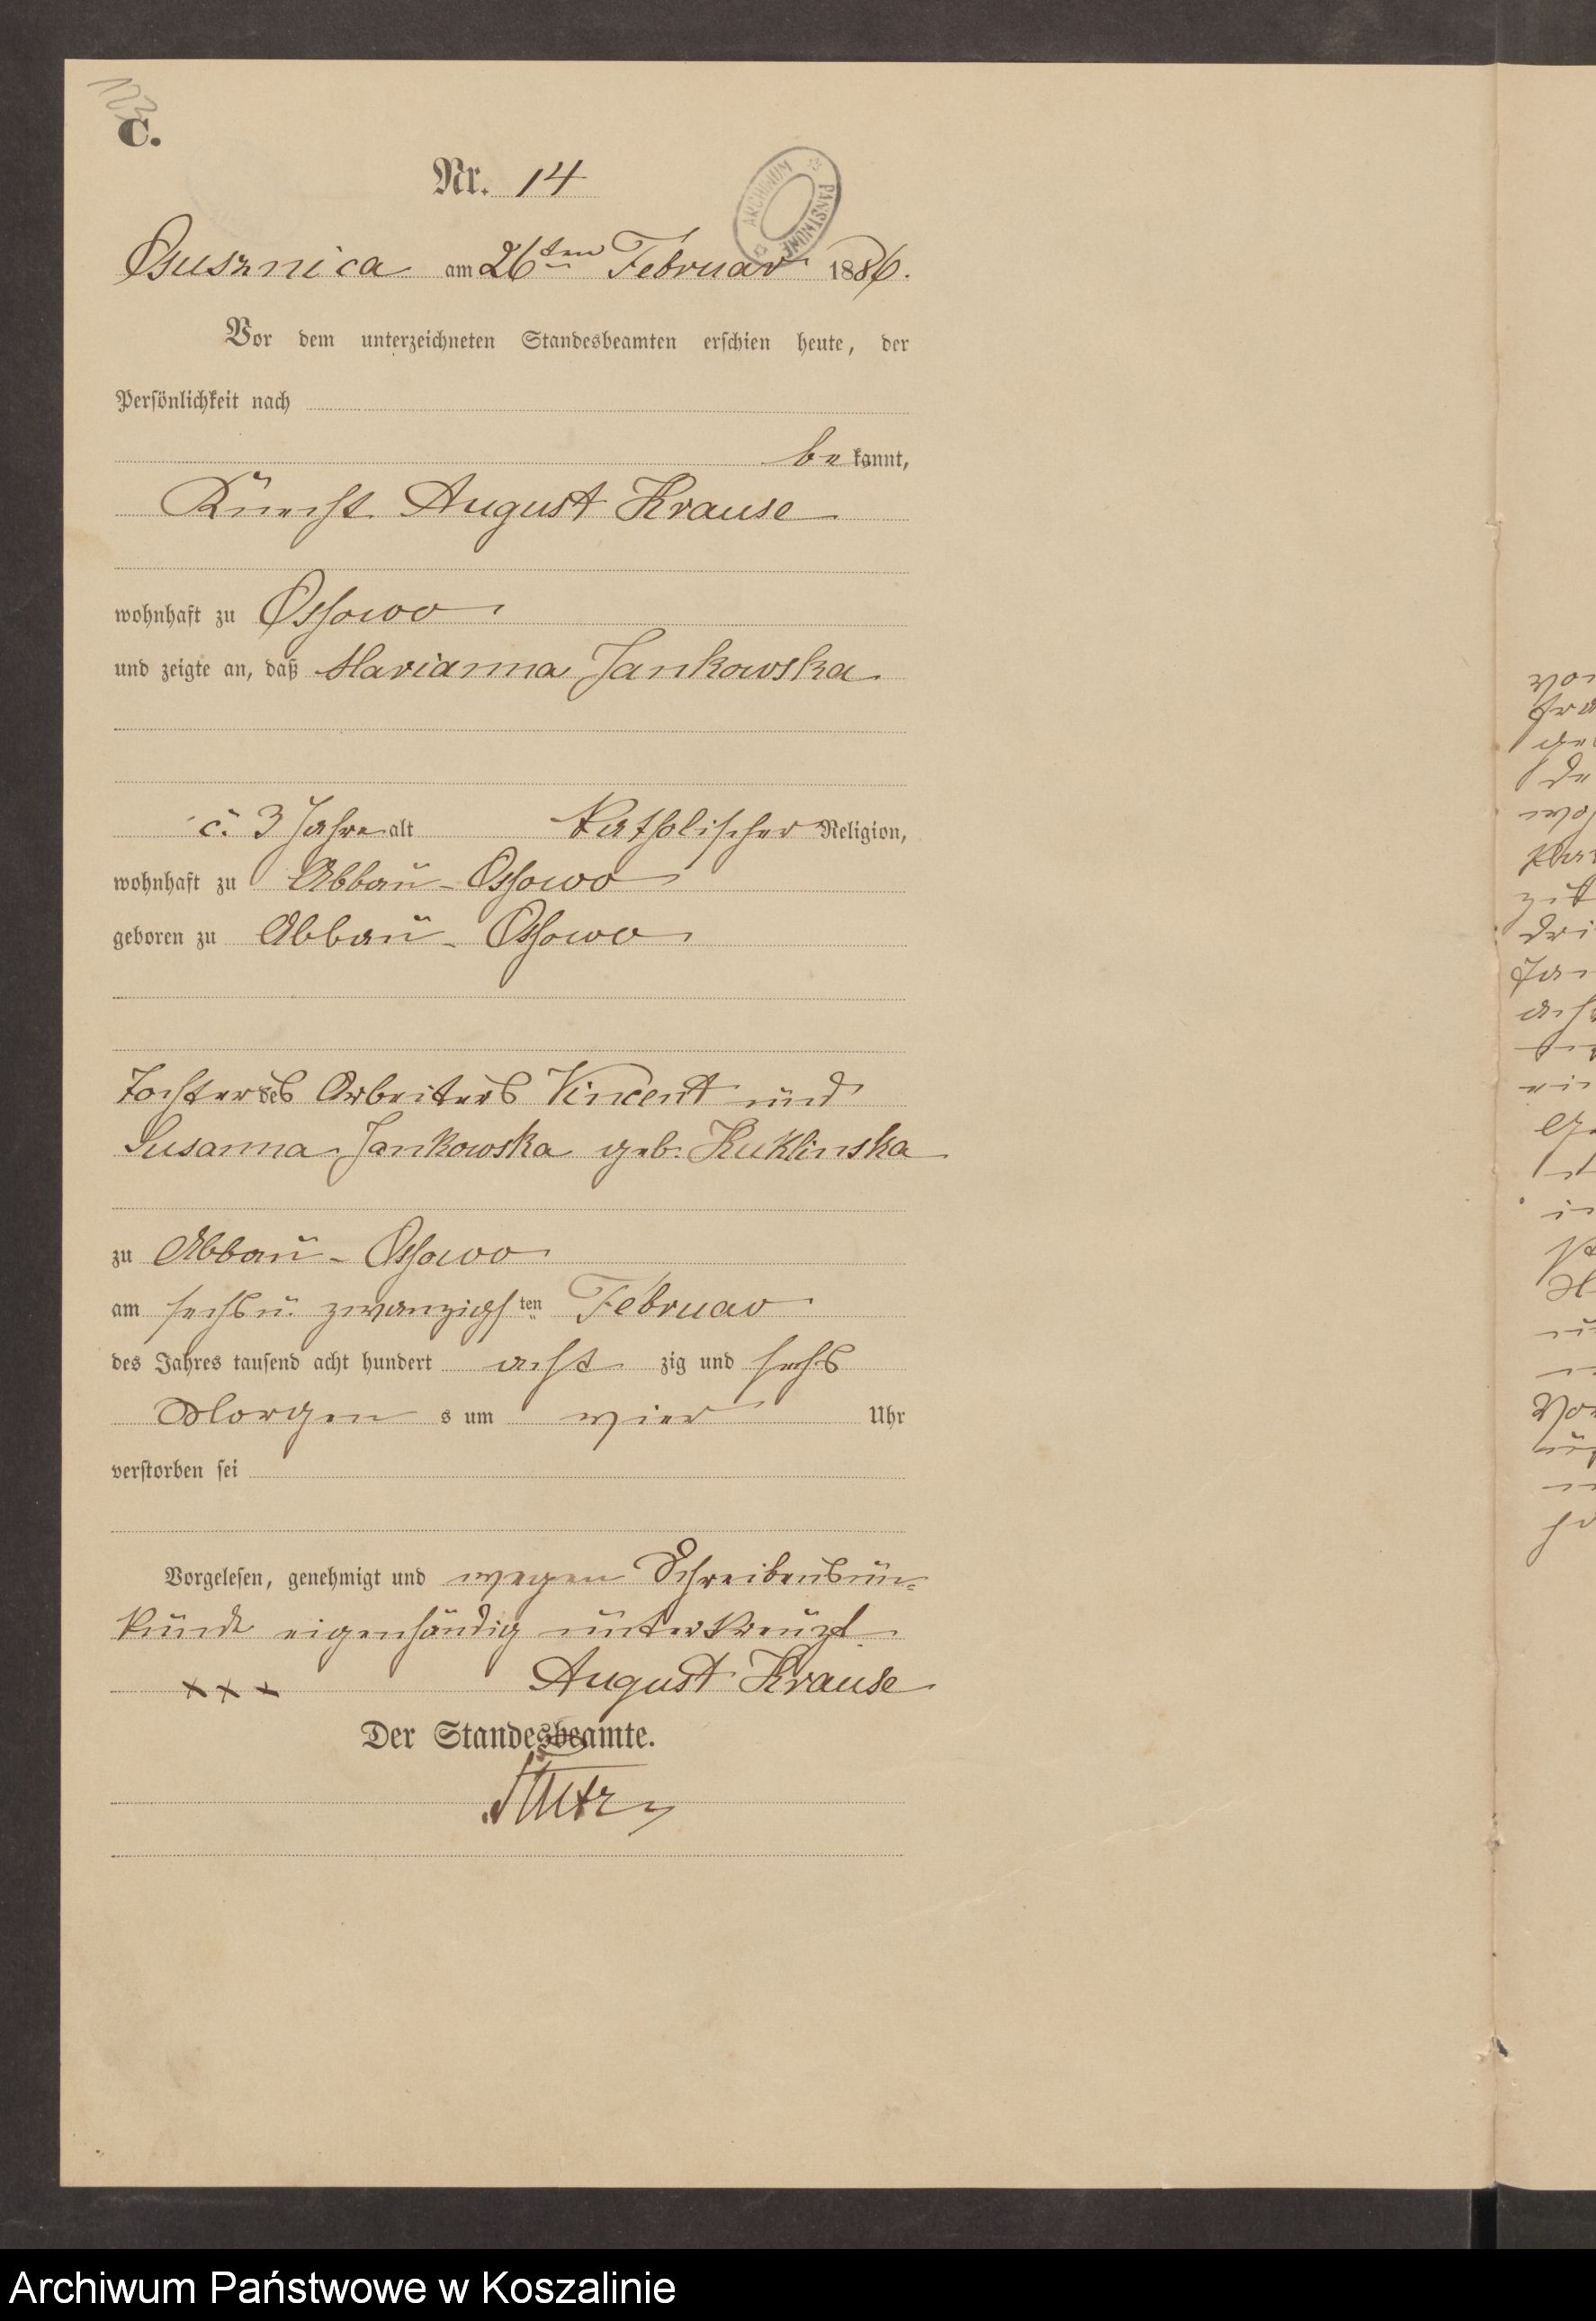 C.
Nr. 14
ARCHIWUM PAŃSTWOWE
Gusznica am 26ten Februar 1886.
Vor dem unterzeichneten Standesbeamten erschien heute, der
Persönlichkeit nach
be kannt,
Knecht August Krause
wohnhaft zu Ossowo
und zeigte an, daß Marianna Jankowska
c. 3 Jahre alt katholischer Religion,
wohnhaft zu Abbau-Ossowo
geboren zu Abbau-Ossowo
Tochter des Arbeiters Vincent und
Susanna Jankowska geb. Kuklinska
zu Abbau-Ossowo
am sechs u. zwanzigsten Februar
des Jahres tausend acht hundert acht zig und sechs
Morgen s um vier Uhr
verstorben sei
Vorgelesen, genehmigt und wegen Schreibensun-
kunde eigenhändig unterkreuzt
xxx August Krause
Der Standesbeamte.
Archiwum Państwowe w Koszalinie